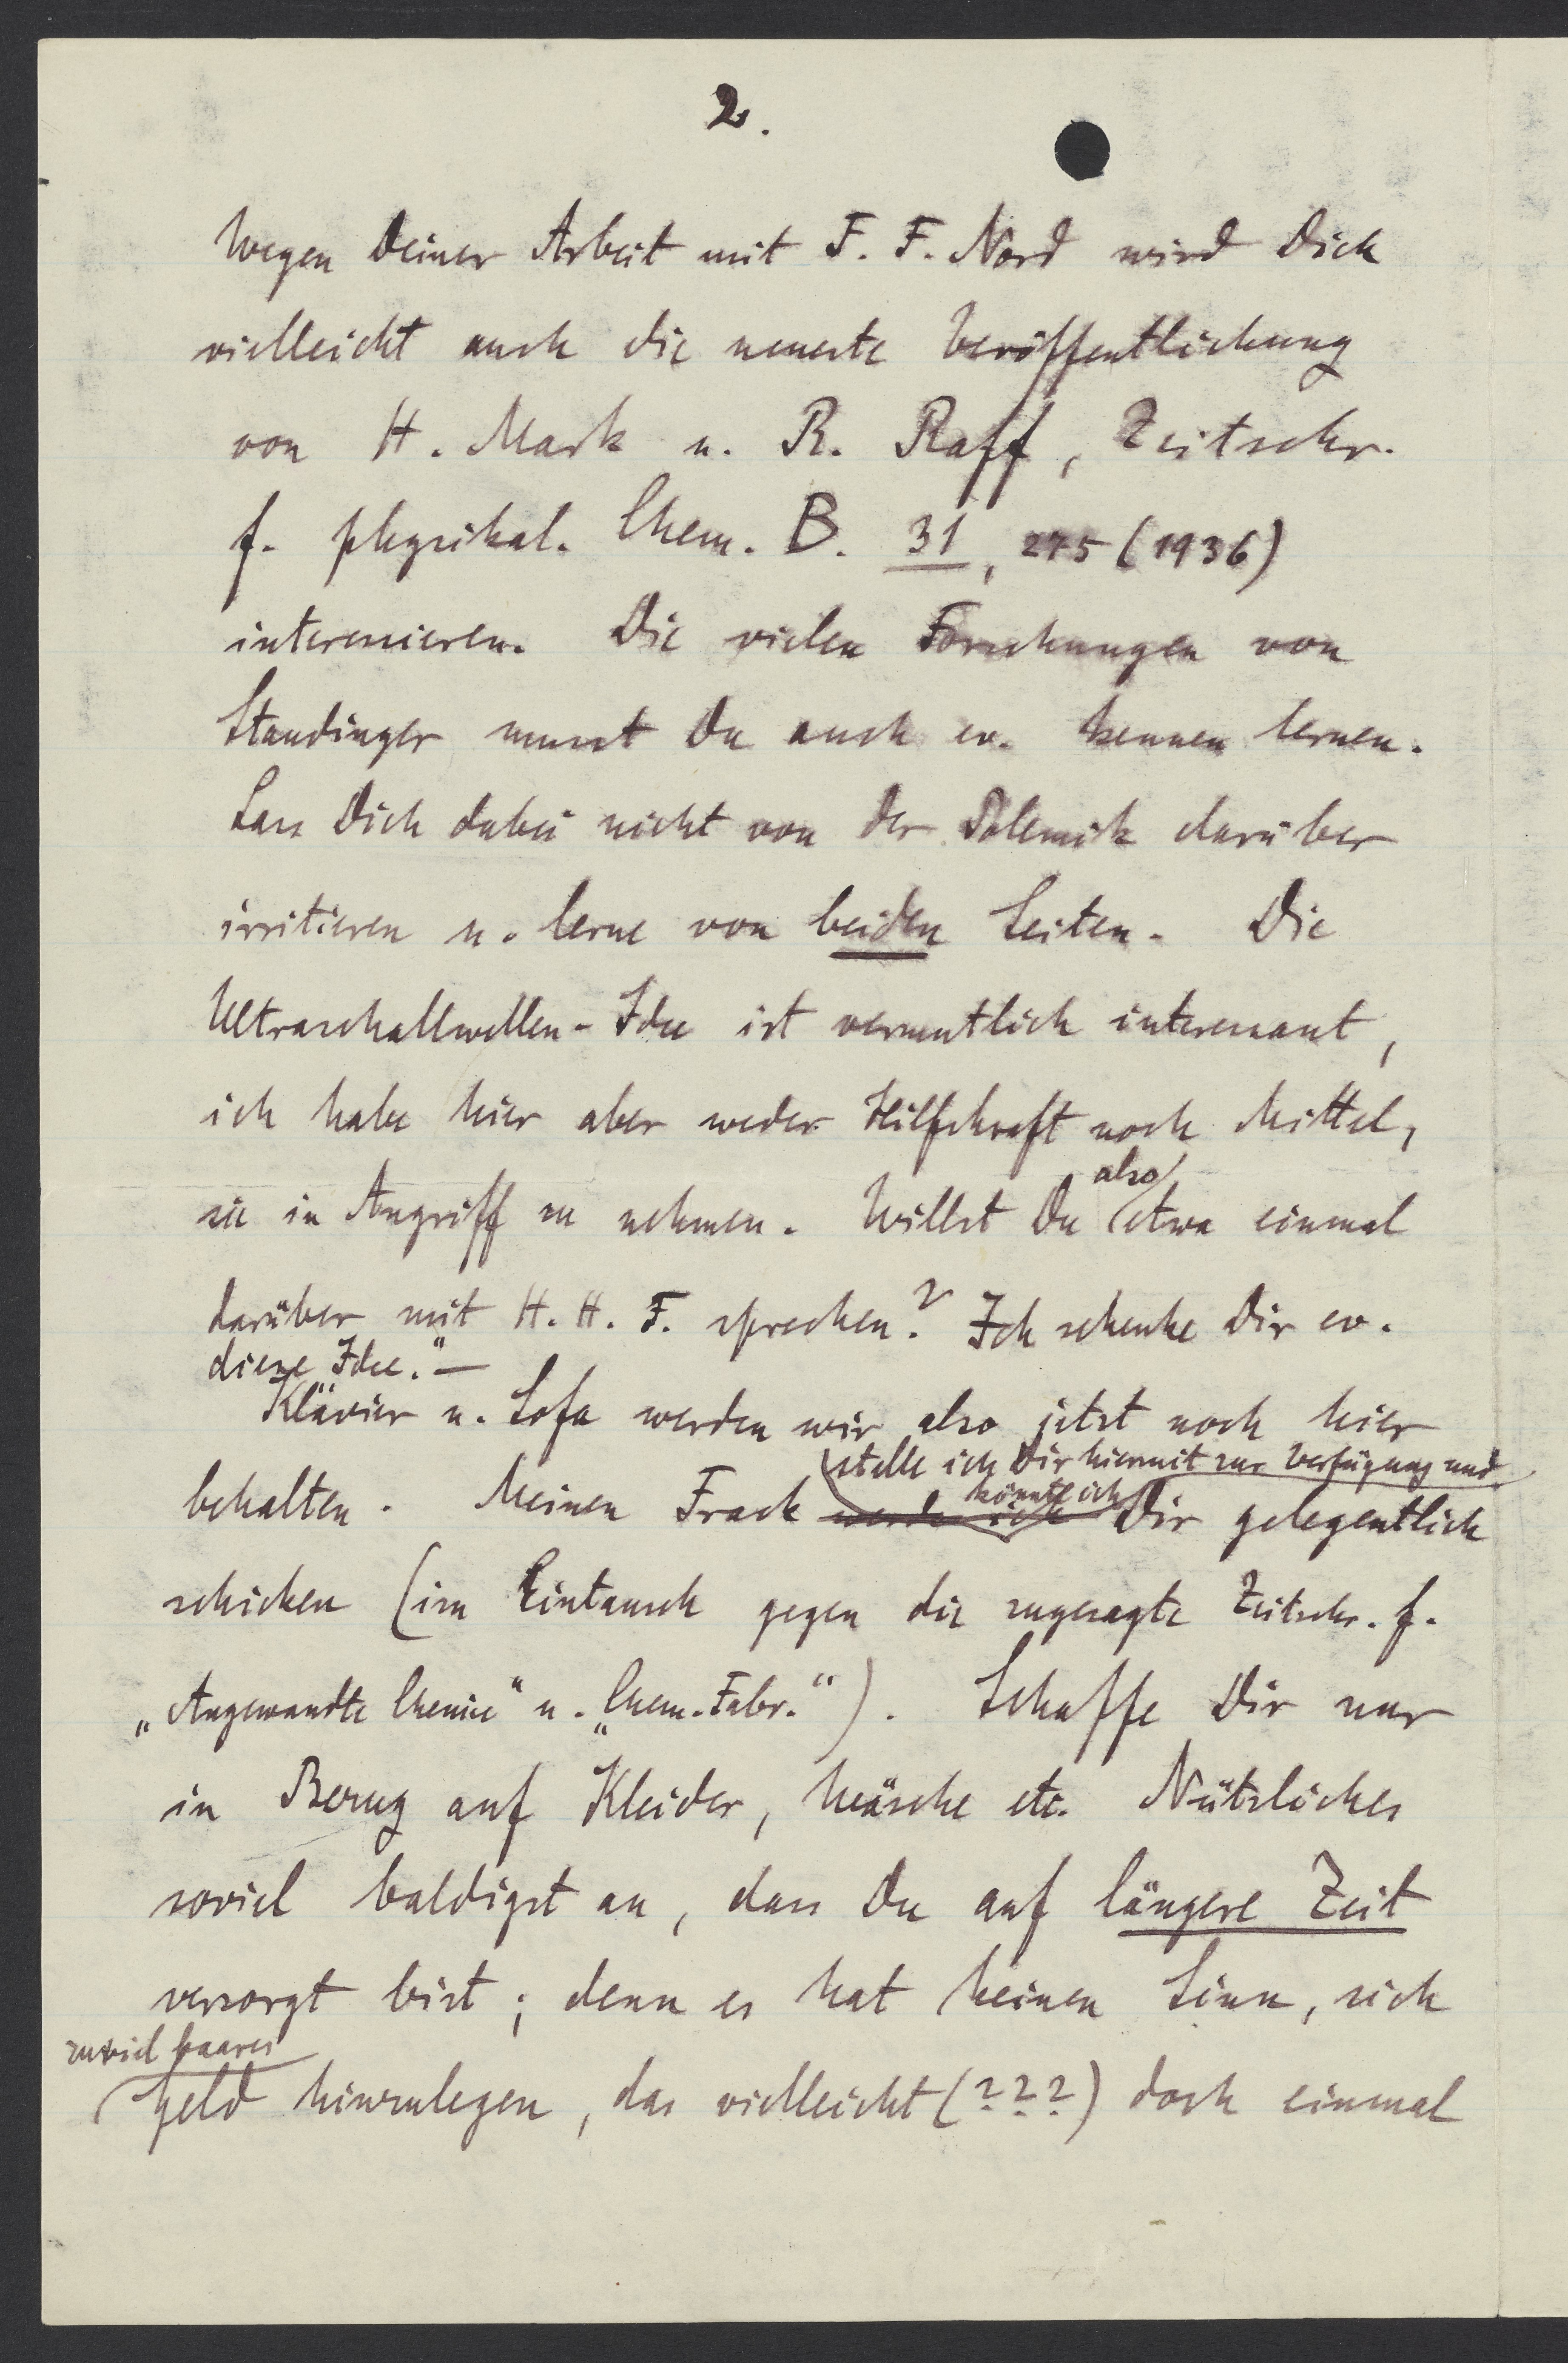 2.
Wegen Deiner Arbeit mit F. F. Nord wird Dich
vielleicht auch die neueste Veröffentlichung
von H. Mark u. R. Raff, Zeitschr.
f. physikal. Chem. B. 31, 275 (1936)
interessieren. Die vielen Forschungen von
Staudinger musst Du auch ev. kennen lernen.
Lass Dich dabei nicht von der Polemik darüber
irritieren u. lerne von beiden Seiten. Die
Ultraschallwellen-Idee ist vermutlich interessant,
ich habe hier aber weder Hilfskraft noch Mittel,
also
sie in Angriff zu nehmen. Willst Du etwa einmal
darüber mit H. H. F. sprechen? Ich schenke Dir ev.
diese Idee." —
Klavier u. Sofa werden wir also jetzt noch hier
stelle ich Dir hiermit zur Verfügung und
könnte ich
behalten. Meinen Frack werde ich Dir gelegentlich
schicken (im Eintausch gegen die zugesagte Zeitschr. f.
„Angewandte Chemie" u. „Chem. Fabr."). Schaffe Dir nur
in Bezug auf Kleider, Wäsche etc. Nützliches
soviel baldigst an, dass Du auf längere Zeit
versorgt bist; denn es hat keinen Sinn, sich
zuviel baares
Geld hinzulegen, das vielleicht (???) doch einmal